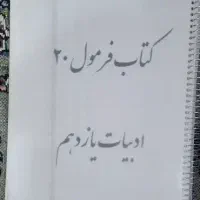 کتاب فرمول ۲۰
ادبیات یازدهم